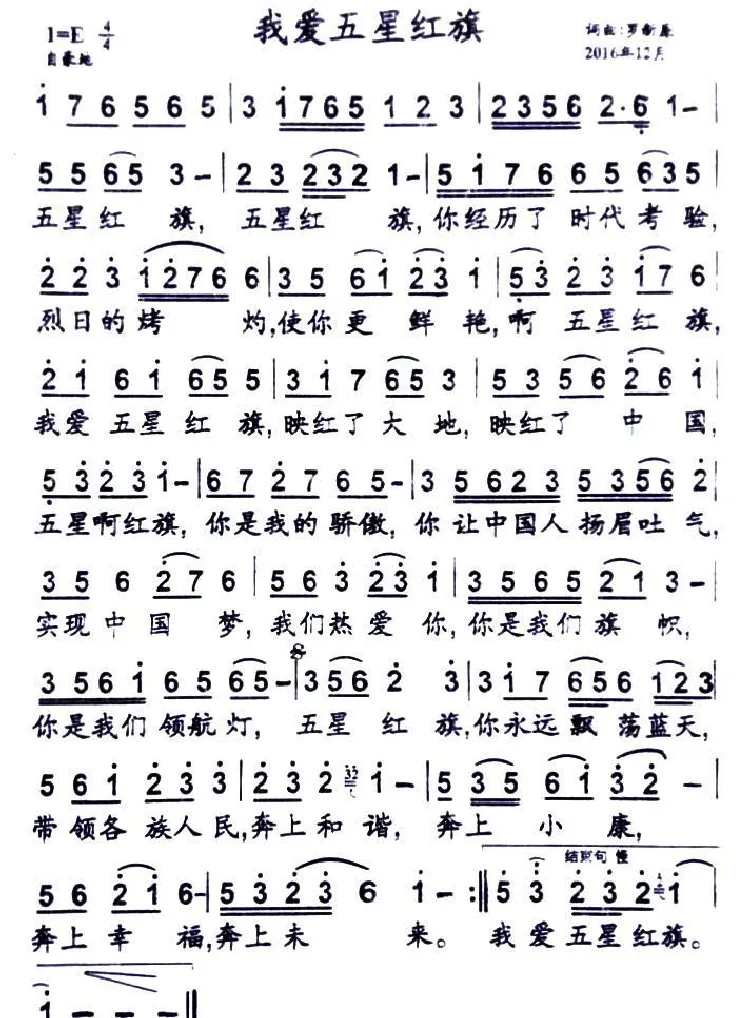 我爱五星红旗
1=E 4/4
自豪地
词曲:罗新
2016年12月
i 7 6 5 6 5 | 3 i765 1 2 3 | 2356 2·6 1 – |
5 5 65 3 – | 2 3 232 1 – | 5 i 7 6 6 5 635 |
五星红 旗, 五星红 旗,你经历了 时代考 验,
2 2 3 i276 6 | 3 5 6i 23 i | 53 23 i7 6 |
烈日的烤 灼,使你更 鲜 艳,啊 五星红 旗,
2 i 6 i 65 5 | 3 i 7 65 3 | 5 3 5 6 26 i |
我爱 五星 红 旗,映红了 大 地,映红了 中 国,
5 3 2 3 i – | 6 7 2 7 6 5 – | 3 5 6 2 3 5 3 5 6 2 |
五星啊红旗, 你是我的 骄傲, 你 让中国人 扬眉吐 气,
3 5 6 27 6 | 5 6 3 23 i | 3 5 6 5 21 3 – |
实现 中 国 梦, 我们热 爱 你, 你是我们 旗 帜,
3 5 6 i 6 5 65 – | 3 56 2 3 | 3 i 7 656 i23 |
你是我们 领航 灯, 五星 红 旗,你永远 飘 荡蓝天,
5 6 i 2 3 3 | 2 3 2 32 i – | 5 35 6i 32 – |
带 领各 族人 民,奔上 和 谐, 奔上 小 康,
结束句 慢
5 6 2i 6 – | 5 3 2 3 6 i – :| 5 3 2 3 2 i |
奔上 幸 福,奔上 未 来。 我 爱五星红旗。
i – – –